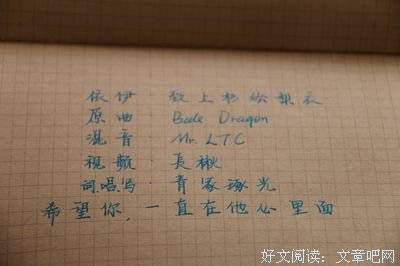 依伊 致上杉绘梨衣
原曲 Bule Dragon
混音 Mr. LTC
视频 長楸
词唱写 青冢琢光
希望你,一直在他心里面
好文阅读:文章吧网